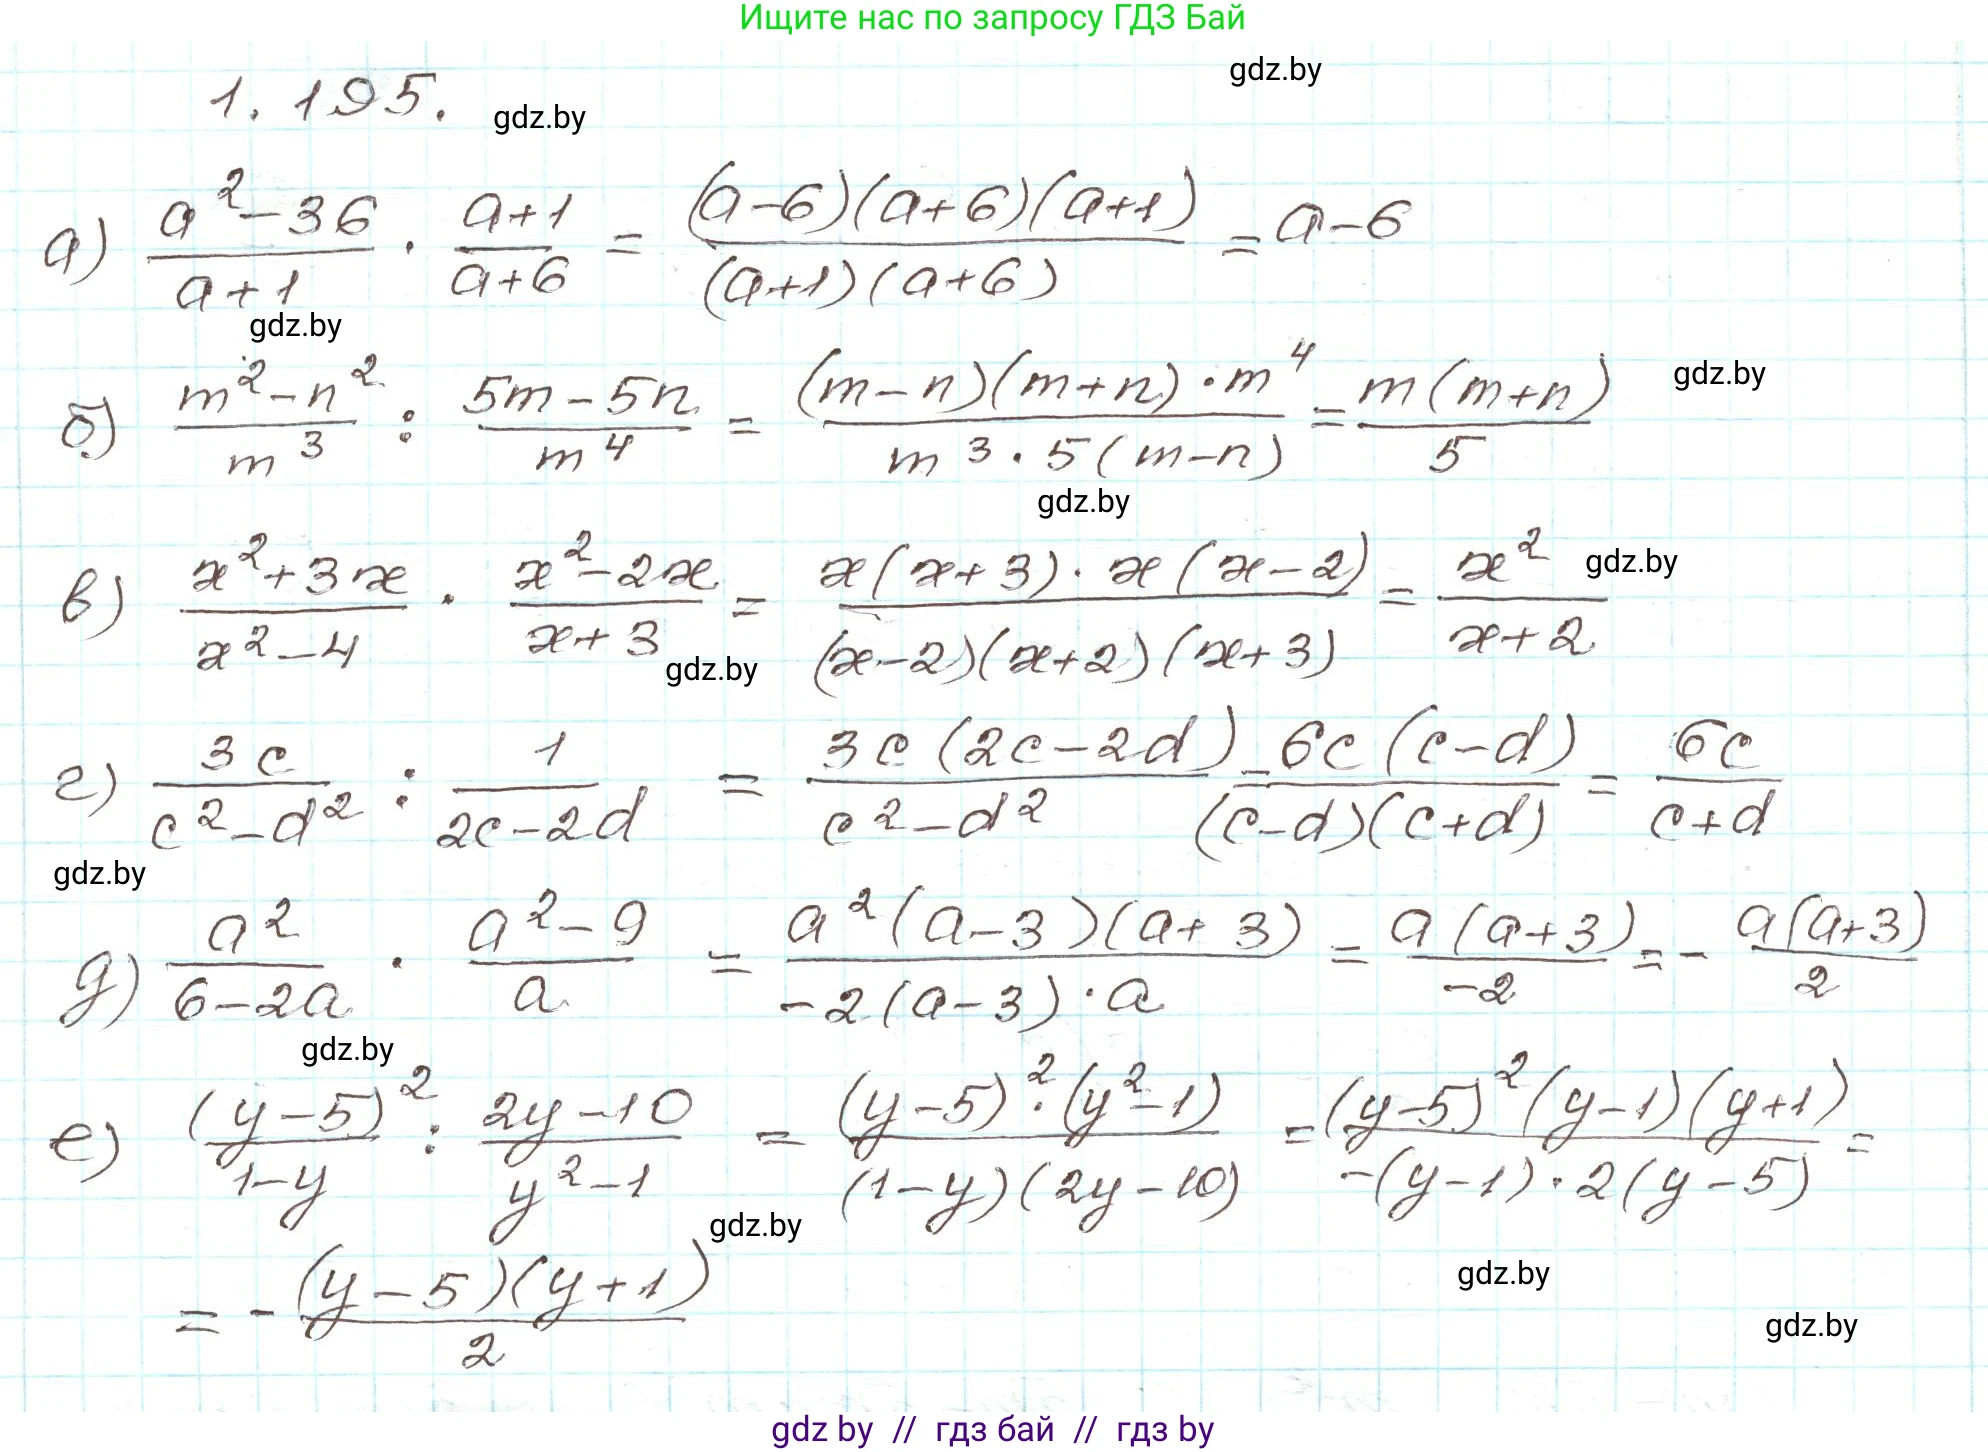 Ищите нас по запросу ГДЗ Бай
gdz.by
1.195. gdz.by
а) (a² − 36)/(a + 1) · (a + 1)/(a + 6) = ((a − 6)(a + 6)(a + 1))/((a + 1)(a + 6)) = a − 6
gdz.by
б) (m² − n²)/m³ : (5m − 5n)/m⁴ = ((m − n)(m + n) · m⁴)/(m³ · 5(m − n)) = (m(m + n))/5 gdz.by
gdz.by
в) (x² + 3x)/(x² − 4) · (x² − 2x)/(x + 3) = (x(x + 3) · x(x − 2))/((x − 2)(x + 2)(x + 3)) = x²/(x + 2) gdz.by
gdz.by
г) 3c/(c² − d²) : 1/(2c − 2d) = (3c(2c − 2d))/(c² − d²) = (6c(c − d))/((c − d)(c + d)) = 6c/(c + d)
gdz.by
д) a²/(6 − 2a) · (a² − 9)/a = (a²(a − 3)(a + 3))/(−2(a − 3) · a) = (a(a + 3))/(−2) = − (a(a + 3))/2
gdz.by
е) (y − 5)²/(1 − y) : (2y − 10)/(y² − 1) = ((y − 5)² · (y² − 1))/((1 − y)(2y − 10)) = ((y − 5)²(y − 1)(y + 1))/(−(y − 1) · 2(y − 5)) =
gdz.by
= − ((y − 5)(y + 1))/2
gdz.by
gdz.by
gdz by // гдз бай // гдз by